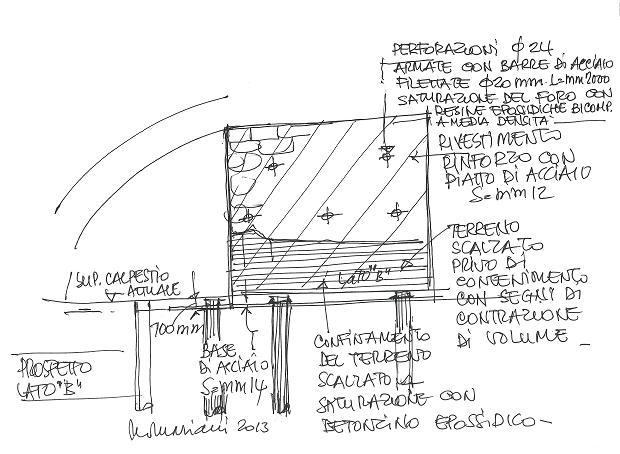 PERFORAZIONI φ24
ARMATE CON BARRE DI ACCIAIO
FILETTATE φ20mm. L=mm2000
SATURAZIONE DEL FORO CON
RESINE EPOSSIDICHE BICOMP.
A MEDIA DENSITA'
RIVESTIMENTO
RINFORZO CON
PIATTO DI ACCIAIO
S=mm12
TERRENO
SCALZATO
PRIVO DI
CONTENIMENTO
CON SEGNI DI
CONTRAZIONE
DI VOLUME
LATO "B"
SUP. CALPESTIO
ATTUALE
700mm
BASE
DI ACCIAIO
S=mm14
CONFINAMENTO
DEL TERRENO
SCALZATO
SATURAZIONE CON
BETONCINO EPOSSIDICO
PROSPETTO
LATO "B"
2013